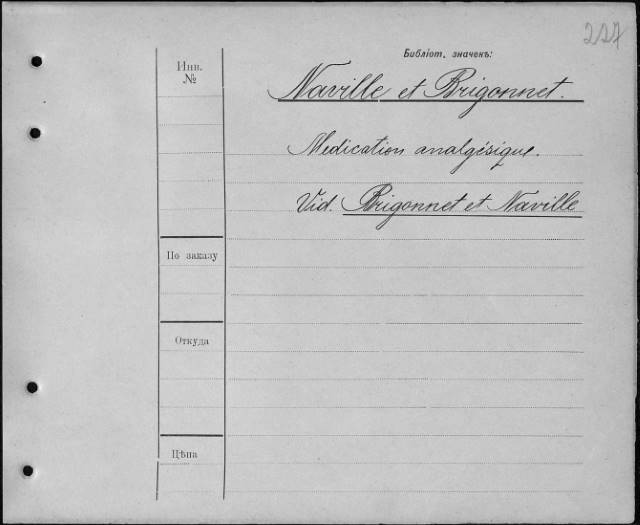 227
Библіот. значекъ:
Инв.
№
Naville et Brigonnet.
Medication analgésique.
Vid. Brigonnet et Naville
По заказу
Откуда
Цѣна